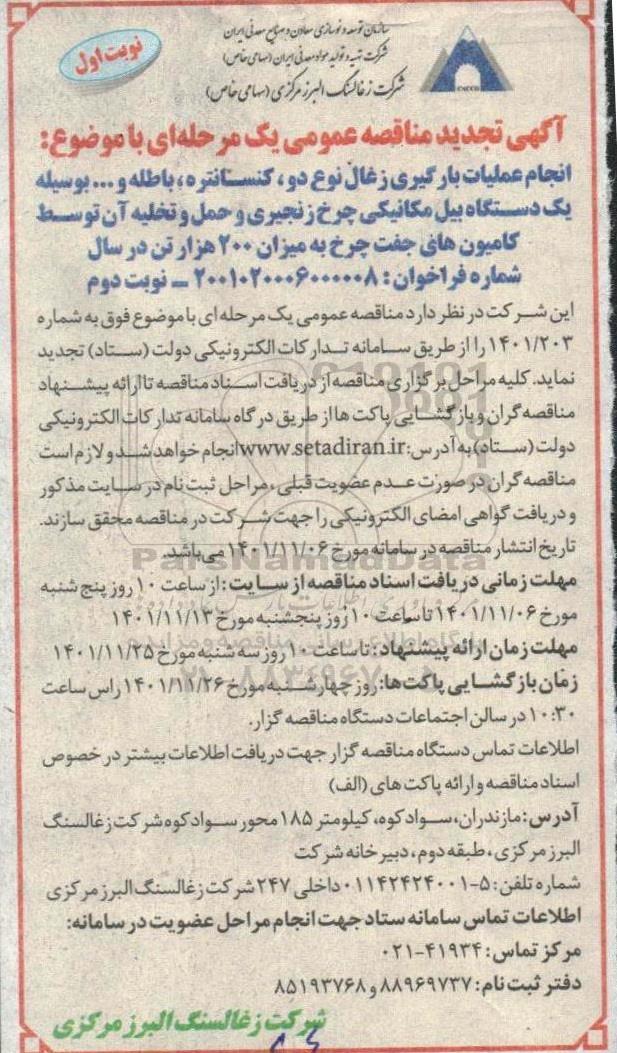 سازمان توسعه و نوسازی معادن و صنایع معدنی ایران
شرکت تهیه و تولید مواد معدنی ایران (سهامی خاص)
شرکت زغالسنگ البرز مرکزی (سهامی خاص)
نوبت اول
آگهی تجدید مناقصه عمومی یک مرحله‌ای با موضوع:
انجام عملیات بارگیری زغال نوع دو، کنسانتره، باطله و... بوسیله
یک دستگاه بیل مکانیکی چرخ زنجیری و حمل و تخلیه آن توسط
کامیون های جفت چرخ به میزان ۲۰۰ هزار تن در سال
شماره فراخوان: ۲۰۰۱۰۲۰۰۰۶۰۰۰۰۰۸ ــ نوبت دوم
این شرکت در نظر دارد مناقصه عمومی یک مرحله ای با موضوع فوق به شماره
۱۴۰۱/۲۰۳ را از طریق سامانه تدارکات الکترونیکی دولت (ستاد) تجدید
نماید. کلیه مراحل برگزاری مناقصه از دریافت اسناد مناقصه تا ارائه پیشنهاد
مناقصه گران و بازگشایی پاکت ها از طریق درگاه سامانه تدارکات الکترونیکی
دولت (ستاد) به آدرس: www.setadiran.ir انجام خواهد شد و لازم است
مناقصه گران در صورت عدم عضویت قبلی، مراحل ثبت نام در سایت مذکور
و دریافت گواهی امضای الکترونیکی را جهت شرکت در مناقصه محقق سازند.
تاریخ انتشار مناقصه در سامانه مورخ ۱۴۰۱/۱۱/۰۶ می‌باشد.
مهلت زمانی دریافت اسناد مناقصه از سایت: از ساعت ۱۰ روز پنج شنبه
مورخ ۱۴۰۱/۱۱/۰۶ تا ساعت ۱۰ روز پنجشنبه مورخ ۱۴۰۱/۱۱/۱۳
مهلت زمان ارائه پیشنهاد: تا ساعت ۱۰ روز سه شنبه مورخ ۱۴۰۱/۱۱/۲۵
زمان بازگشایی پاکت‌ها: روز چهارشنبه مورخ ۱۴۰۱/۱۱/۲۶ راس ساعت
۱۰:۳۰ در سالن اجتماعات دستگاه مناقصه گزار.
اطلاعات تماس دستگاه مناقصه گزار جهت دریافت اطلاعات بیشتر در خصوص
اسناد مناقصه و ارائه پاکت های (الف)
آدرس: مازندران، سوادکوه، کیلومتر ۱۸۵ محور سوادکوه شرکت زغالسنگ
البرز مرکزی، طبقه دوم، دبیرخانه شرکت
شماره تلفن: ۵-۰۱۱۴۲۴۲۴۰۰۱ داخلی ۲۴۷ شرکت زغالسنگ البرز مرکزی
اطلاعات تماس سامانه ستاد جهت انجام مراحل عضویت در سامانه:
مرکز تماس: ۴۱۹۳۴-۰۲۱
دفتر ثبت نام: ۸۸۹۶۹۷۳۷ و ۸۵۱۹۳۷۶۸
شرکت زغالسنگ البرز مرکزی
ParsNamadData